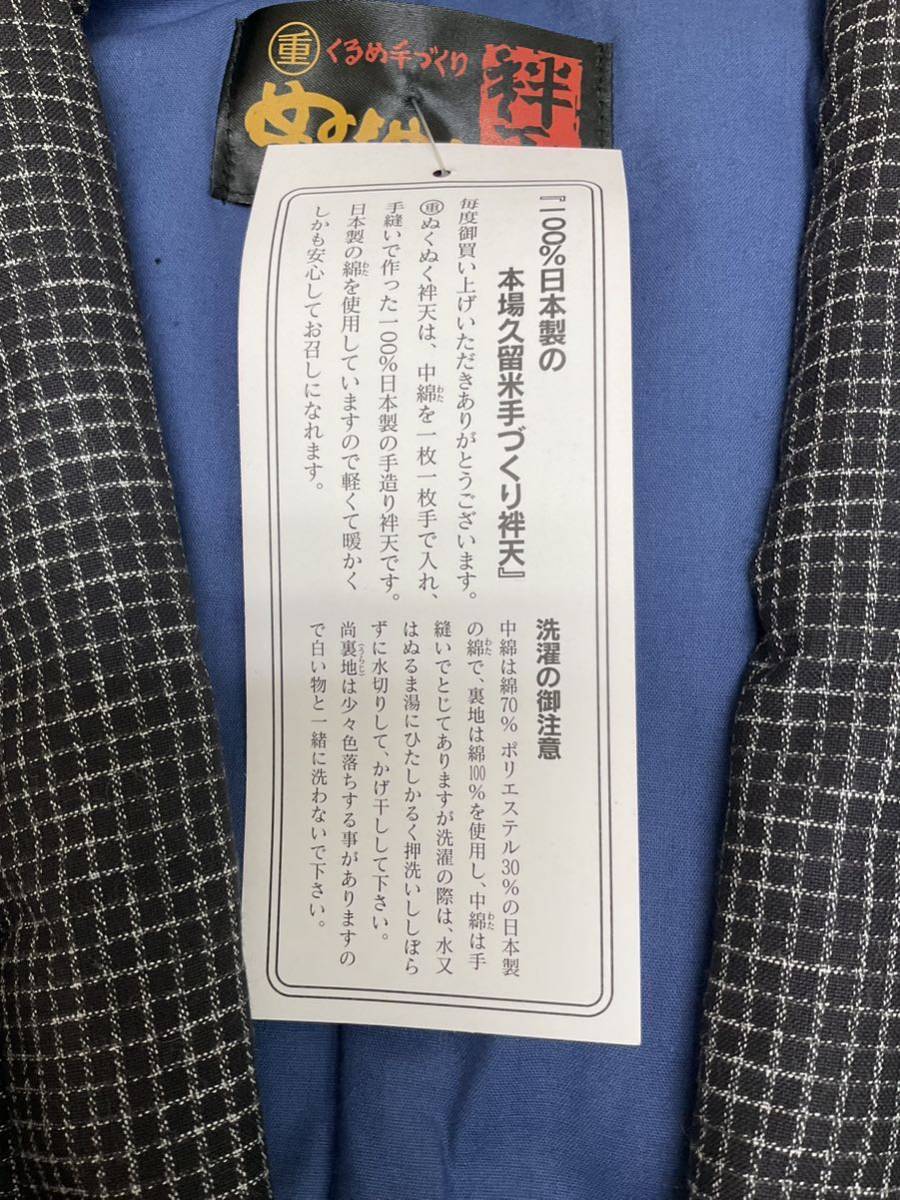 重 くるめ手づくり
袢
『一〇〇%日本製の
本場久留米手づくり袢天』
毎度御買い上げいただきありがとうございます。
重ぬくぬく袢天は、中綿を一枚一枚手で入れ、
手縫いで作った一〇〇%日本製の手造り袢天です。
日本製の綿を使用していますので軽くて暖かく
しかも安心してお召しになれます。
洗濯の御注意
中綿は綿70% ポリエステル30%の日本製
の綿で、裏地は綿100%を使用し、中綿は手
縫いでとじてありますが洗濯の際は、水又
はぬるま湯にひたしかるく押洗いししぼら
ずに水切りして、かげ干しして下さい。
尚裏地は少々色落ちする事がありますの
で白い物と一緒に洗わないで下さい。